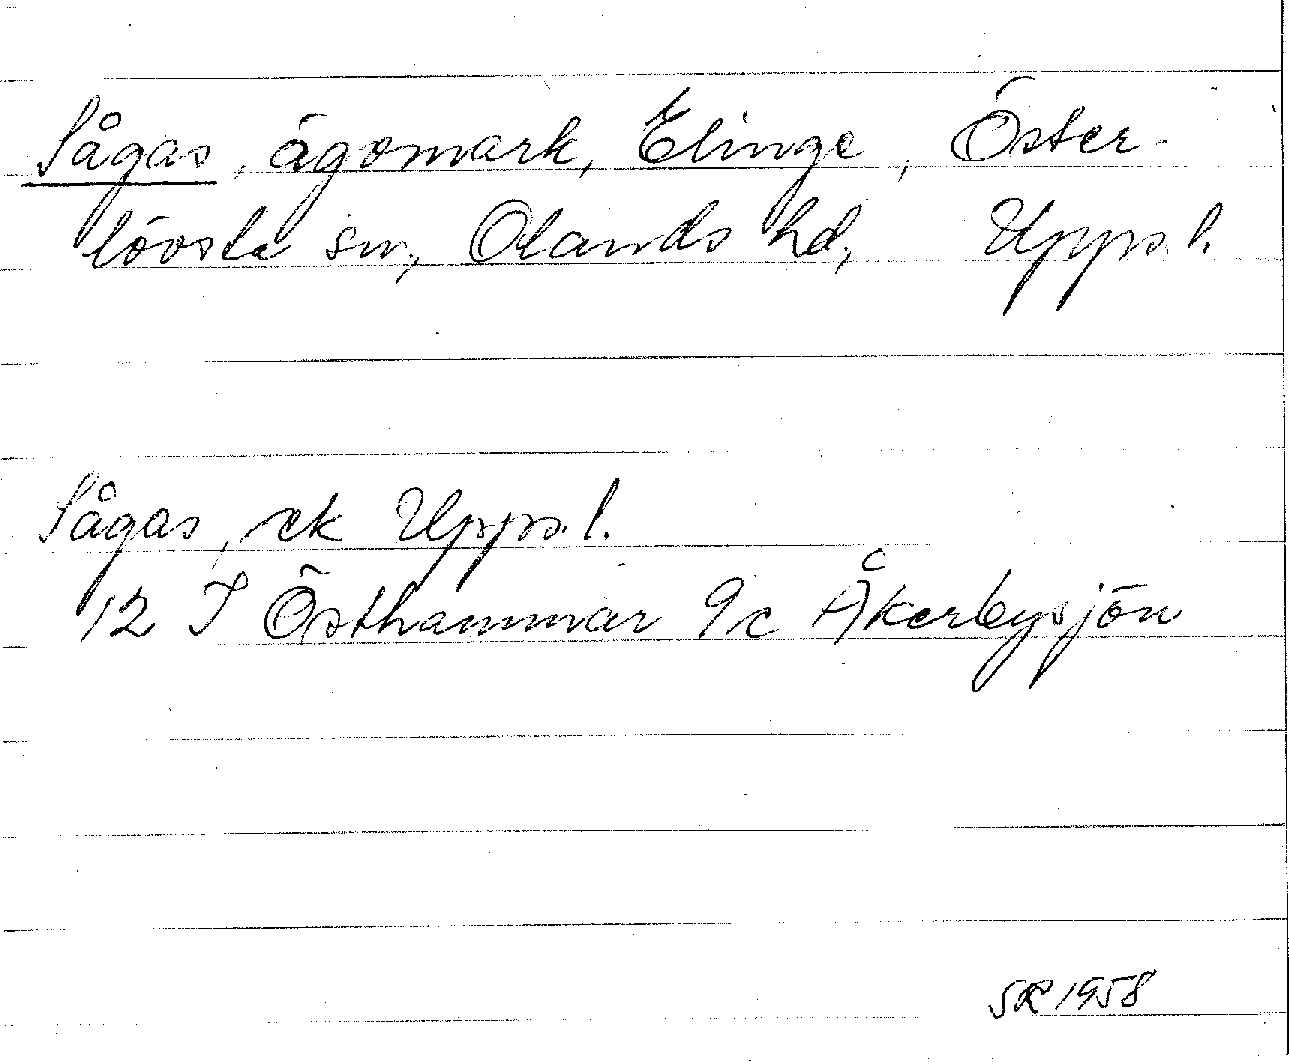 Sågas, ägomark, Elinge, Öster-
lövsta sn, Olands hd, Upps. l.
Sågas, ek Upps. l.
12 I Östhammar 9c Åkerbysjön
SR 1958